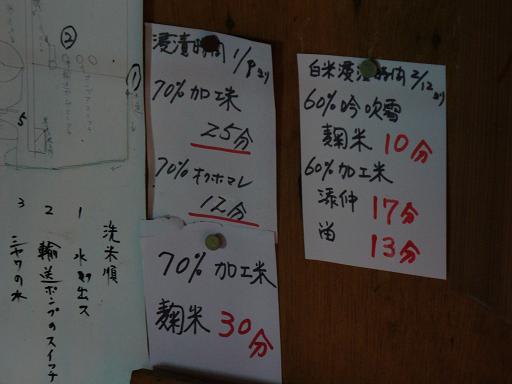 浸漬時間 1/9より
70%加工米
25分
70% オクホマレ
12分
70% 加工米
麹米 30分
白米浸漬時間 2/12より
60%吟吹雪
麹米 10分
60%加工米
添仲 17分
留 13分
②
①
洗米順
1 水取出ス
2 輸送ポンプのスイッチ
3 シャワの水